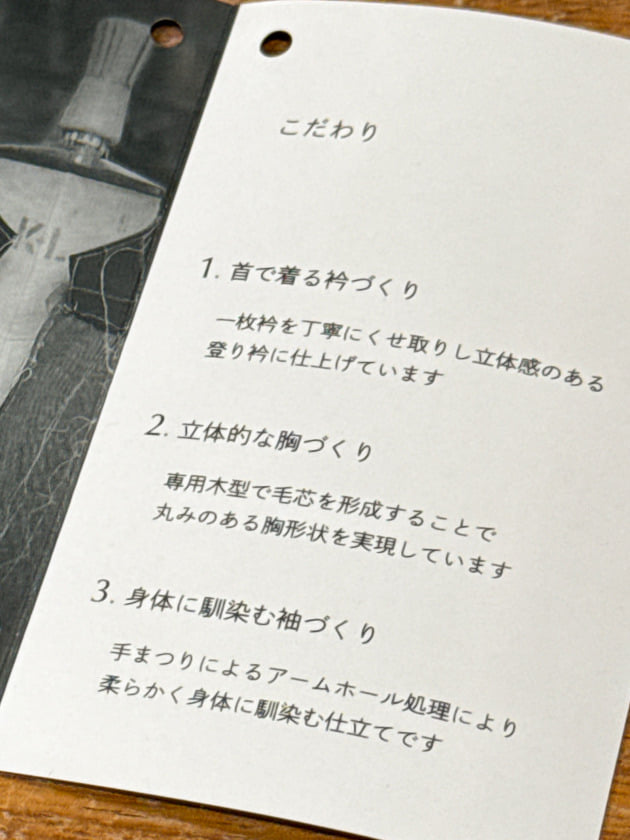 こだわり
1. 首で着る衿づくり
一枚衿を丁寧にくせ取りし立体感のある
登り衿に仕上げています
2. 立体的な胸づくり
専用木型で毛芯を形成することで
丸みのある胸形状を実現しています
3. 身体に馴染む袖づくり
手まつりによるアームホール処理により
柔らかく身体に馴染む仕立てです